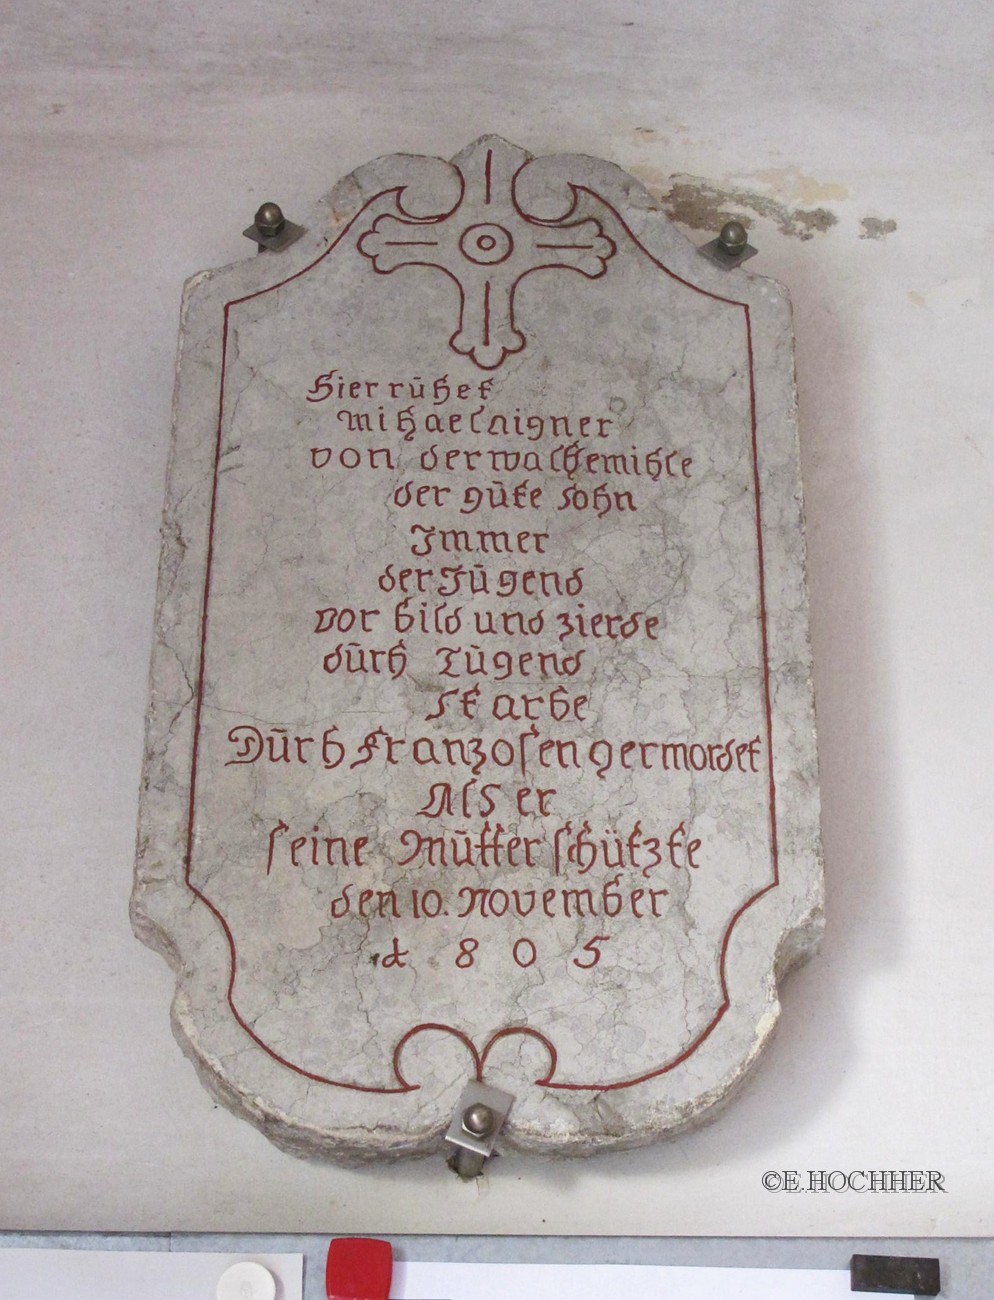 Hier rūhet
mihael aigner
von der walhemihle
der gūte sohn
Immer
der Jūgend
vor bild und zierde
dūrh Tūgend
starbe
Dūrh franzosen germordet
Als er
seine Mūtter schützte
den 10. November
1805
©E.HOCHHER